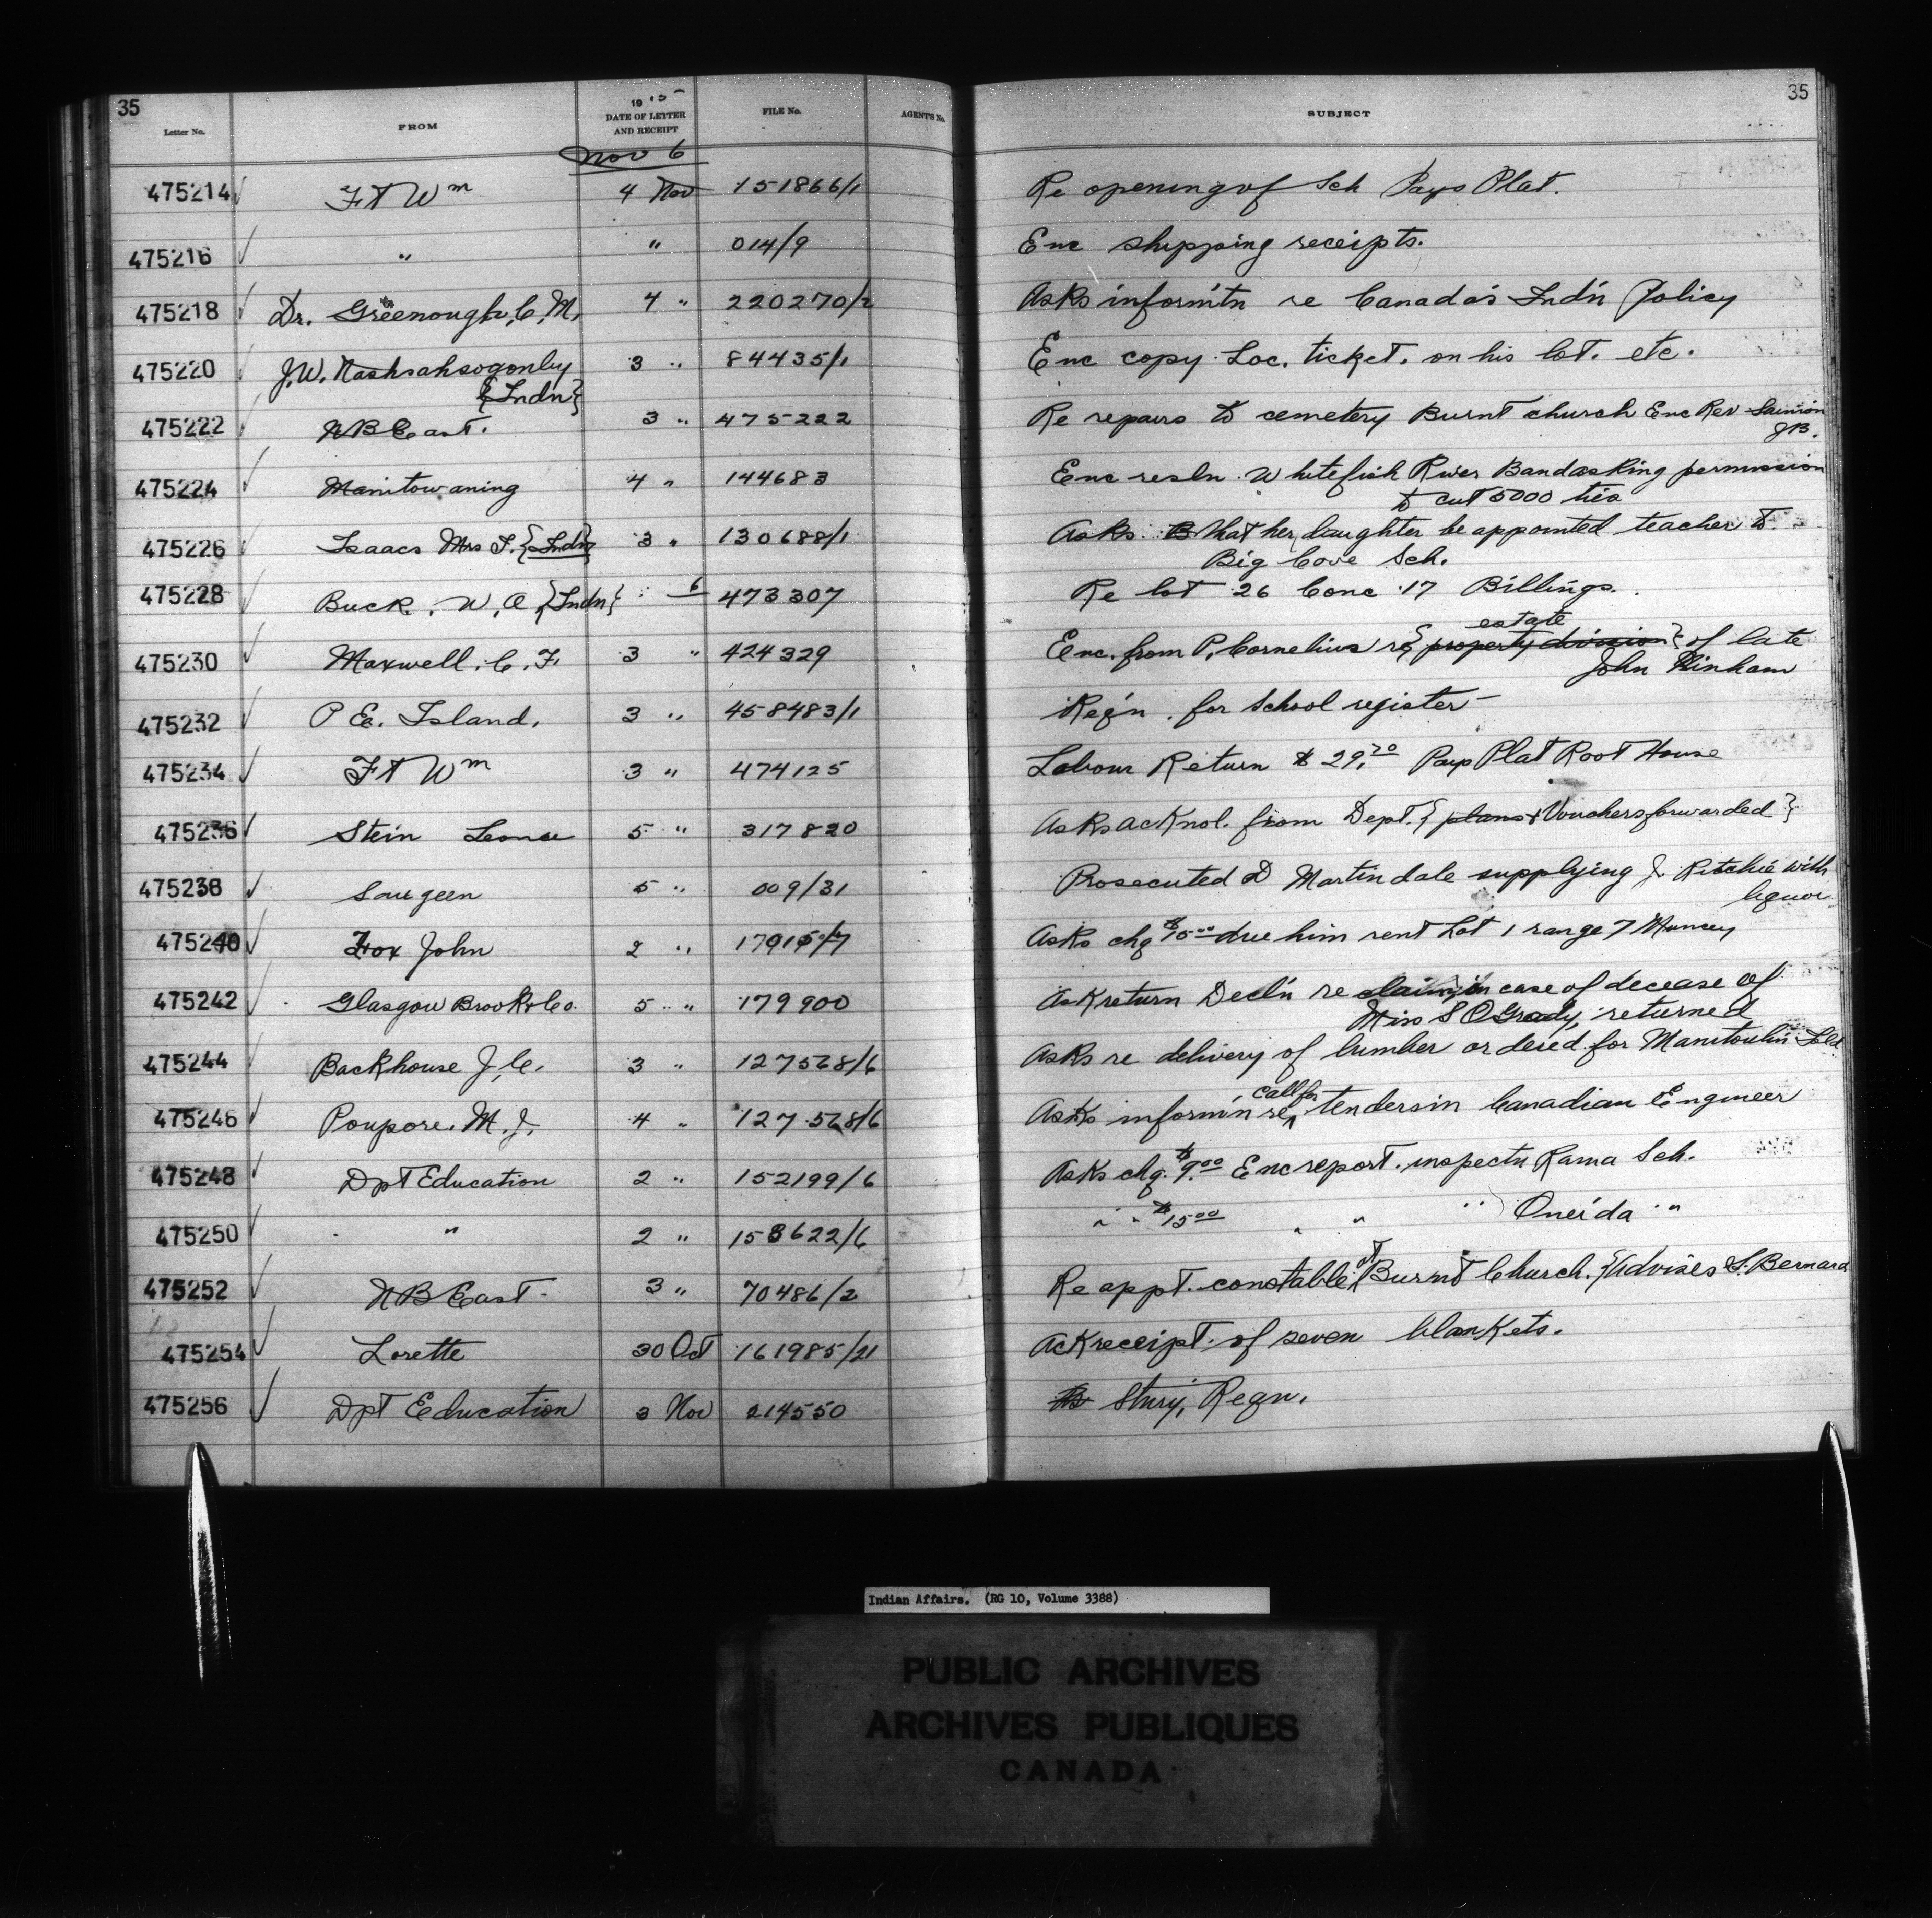 35
35
Letter No. FROM 1915 DATE OF LETTER AND RECEIPT FILE No. AGENT'S No. SUBJECT
Nov 6
475214 Ft Wm 4 Nov 151866/1 Re opening of Sch Pays Plat.
475216 " " 014/9 Enc shipping receipts.
475218 Dr. Greenough, C, M, 4 " 220270/2 Asks inform'tn re Canada's Ind'n Policy
475220 J.W. 3 " 84435/1 Enc copy Loc. ticket. on his lot. etc.
{Indn}
475222 NB East. 3 " 475222 Re repairs to cemetery Burnt church Enc Rev
JB.
475224 Manitowaning 4 " 144683 Enc resln. Whitefish River Band asking permission
to cut 5000 ties
475226 Isaacs Mrs {Indn} 3 " 130688/1 Asks that her daughter be appointed teacher to
Big Cove Sch.
475228 Buck. W, A, {Indn} 6 473307 Re lot 26 Conc 17 Billings.
475230 Maxwell. C. F. 3 " 424329 Enc. from P. Cornelius re { property division } estate of late
John
475232 P E. Island. 3 " 458483/1 Reqn. for School register
475234 Ft Wm 3 " 474125 Labour Return $29.70 Pays Plat Root House
475236 Stein 5 " 317820 Asks acknol. from Dept. { plans & Vouchers forwarded }
475238 Saugeen 5 " 009/31 Prosecuted D Martindale supplying J. Ritchie with
liquor
475240 Fox John 2 " Asks chq $15.00 due him rent Lot 1 range 7 Muncey
475242 Glasgow Brook & Co. 5 " 179900 Ask return Decl'n re claim in case of decease of
Miss S O'Grady, returned
475244 Backhouse J, C. 3 " 127568/6 Asks re delivery of lumber ordered for Manitoulin Isld
475246 Poupore. M. J. 4 " 127568/6 Asks inform'n re call for tenders in Canadian Engineer
475248 Dpt Education 2 " 152199/6 Asks chq. $9.00 Enc report. inspectn Rama Sch.
475250 " 2 " 158622/6 " " $15.00 " " " Oneida "
475252 NB East 3 " 70486/2 Re appt. constable at Burnt Church. {Advises S. Bernard
475254 Lorette 30 Oct 161985/21 Ack receipt of seven blankets.
475256 Dpt Education 3 Nov 214550 Reqn.
Indian Affairs. (RG 10, Volume 3388)
PUBLIC ARCHIVES
ARCHIVES PUBLIQUES
CANADA